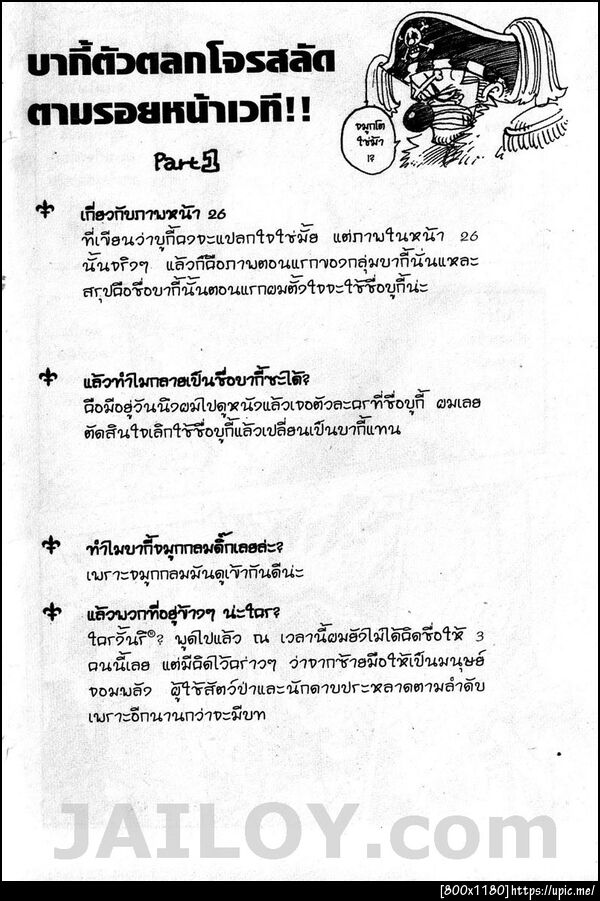 บากี้ตัวตลกโจรสลัด
ตามรอยหน้าเวที!!
Part 1
จมูกโต
ใช่ม้า
!?
เกี่ยวกับภาพหน้า 26
ที่เขียนว่าบุกี้คงจะแปลกใจใช่มั้ย แต่ภาพในหน้า 26
นั้นจริงๆ แล้วก็คือภาพตอนแรกของกลุ่มบากี้นั่นแหละ
สรุปคือชื่อบากี้นั้นตอนแรกผมตั้งใจจะใช้ชื่อบุกี้น่ะ
แล้วทำไมกลายเป็นชื่อบากี้ซะได้?
คือมีอยู่วันนึงผมไปดูหนังแล้วเจอตัวละครที่ชื่อบุกี้ ผมเลย
ตัดสินใจเลิกใช้ชื่อบุกี้แล้วเปลี่ยนเป็นบากี้แทน
ทำไมบากี้จมูกกลมดิ๊กเลยล่ะ?
เพราะจมูกกลมมันดูเข้ากันดีน่ะ
แล้วพวกที่อยู่ข้างๆ น่ะใคร?
ใครงั้นรึ? พูดไปแล้ว ณ เวลานี้ผมยังไม่ได้คิดชื่อให้ 3
คนนี้เลย แต่มีคิดไว้คร่าวๆ ว่าจากซ้ายมือให้เป็นมนุษย์
จอมพลัง ผู้ใช้สัตว์ป่าและนักดาบประหลาดตามลำดับ
เพราะอีกนานกว่าจะมีบท
JAILOY.com
[800x1180]https://upic.me/